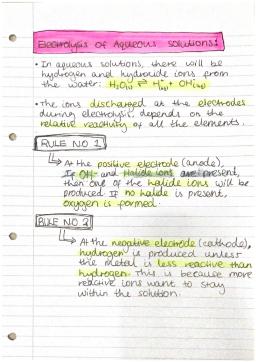 Electrolysis of Aqueous solutions:
• In aqueous solutions, there will be
hydrogen and hydroxide ions from
the water: H₂O(l) ⇌ H⁺(aq) + OH⁻(aq)
• The ions discharged at the electrodes
during electrolysis, depends on the
relative reactivity of all the elements.
RULE NO 1
↳ At the positive electrode (anode),
If OH⁻ and halide ions are present,
then one of the halide ions will be
produced If no halide is present,
oxygen is formed.
RULE NO. 2
↳ At the negative electrode (cathode),
hydrogen is produced unless
the metal is less reactive than
hydrogen. This is because more
reactive ions want to stay
within the solution.